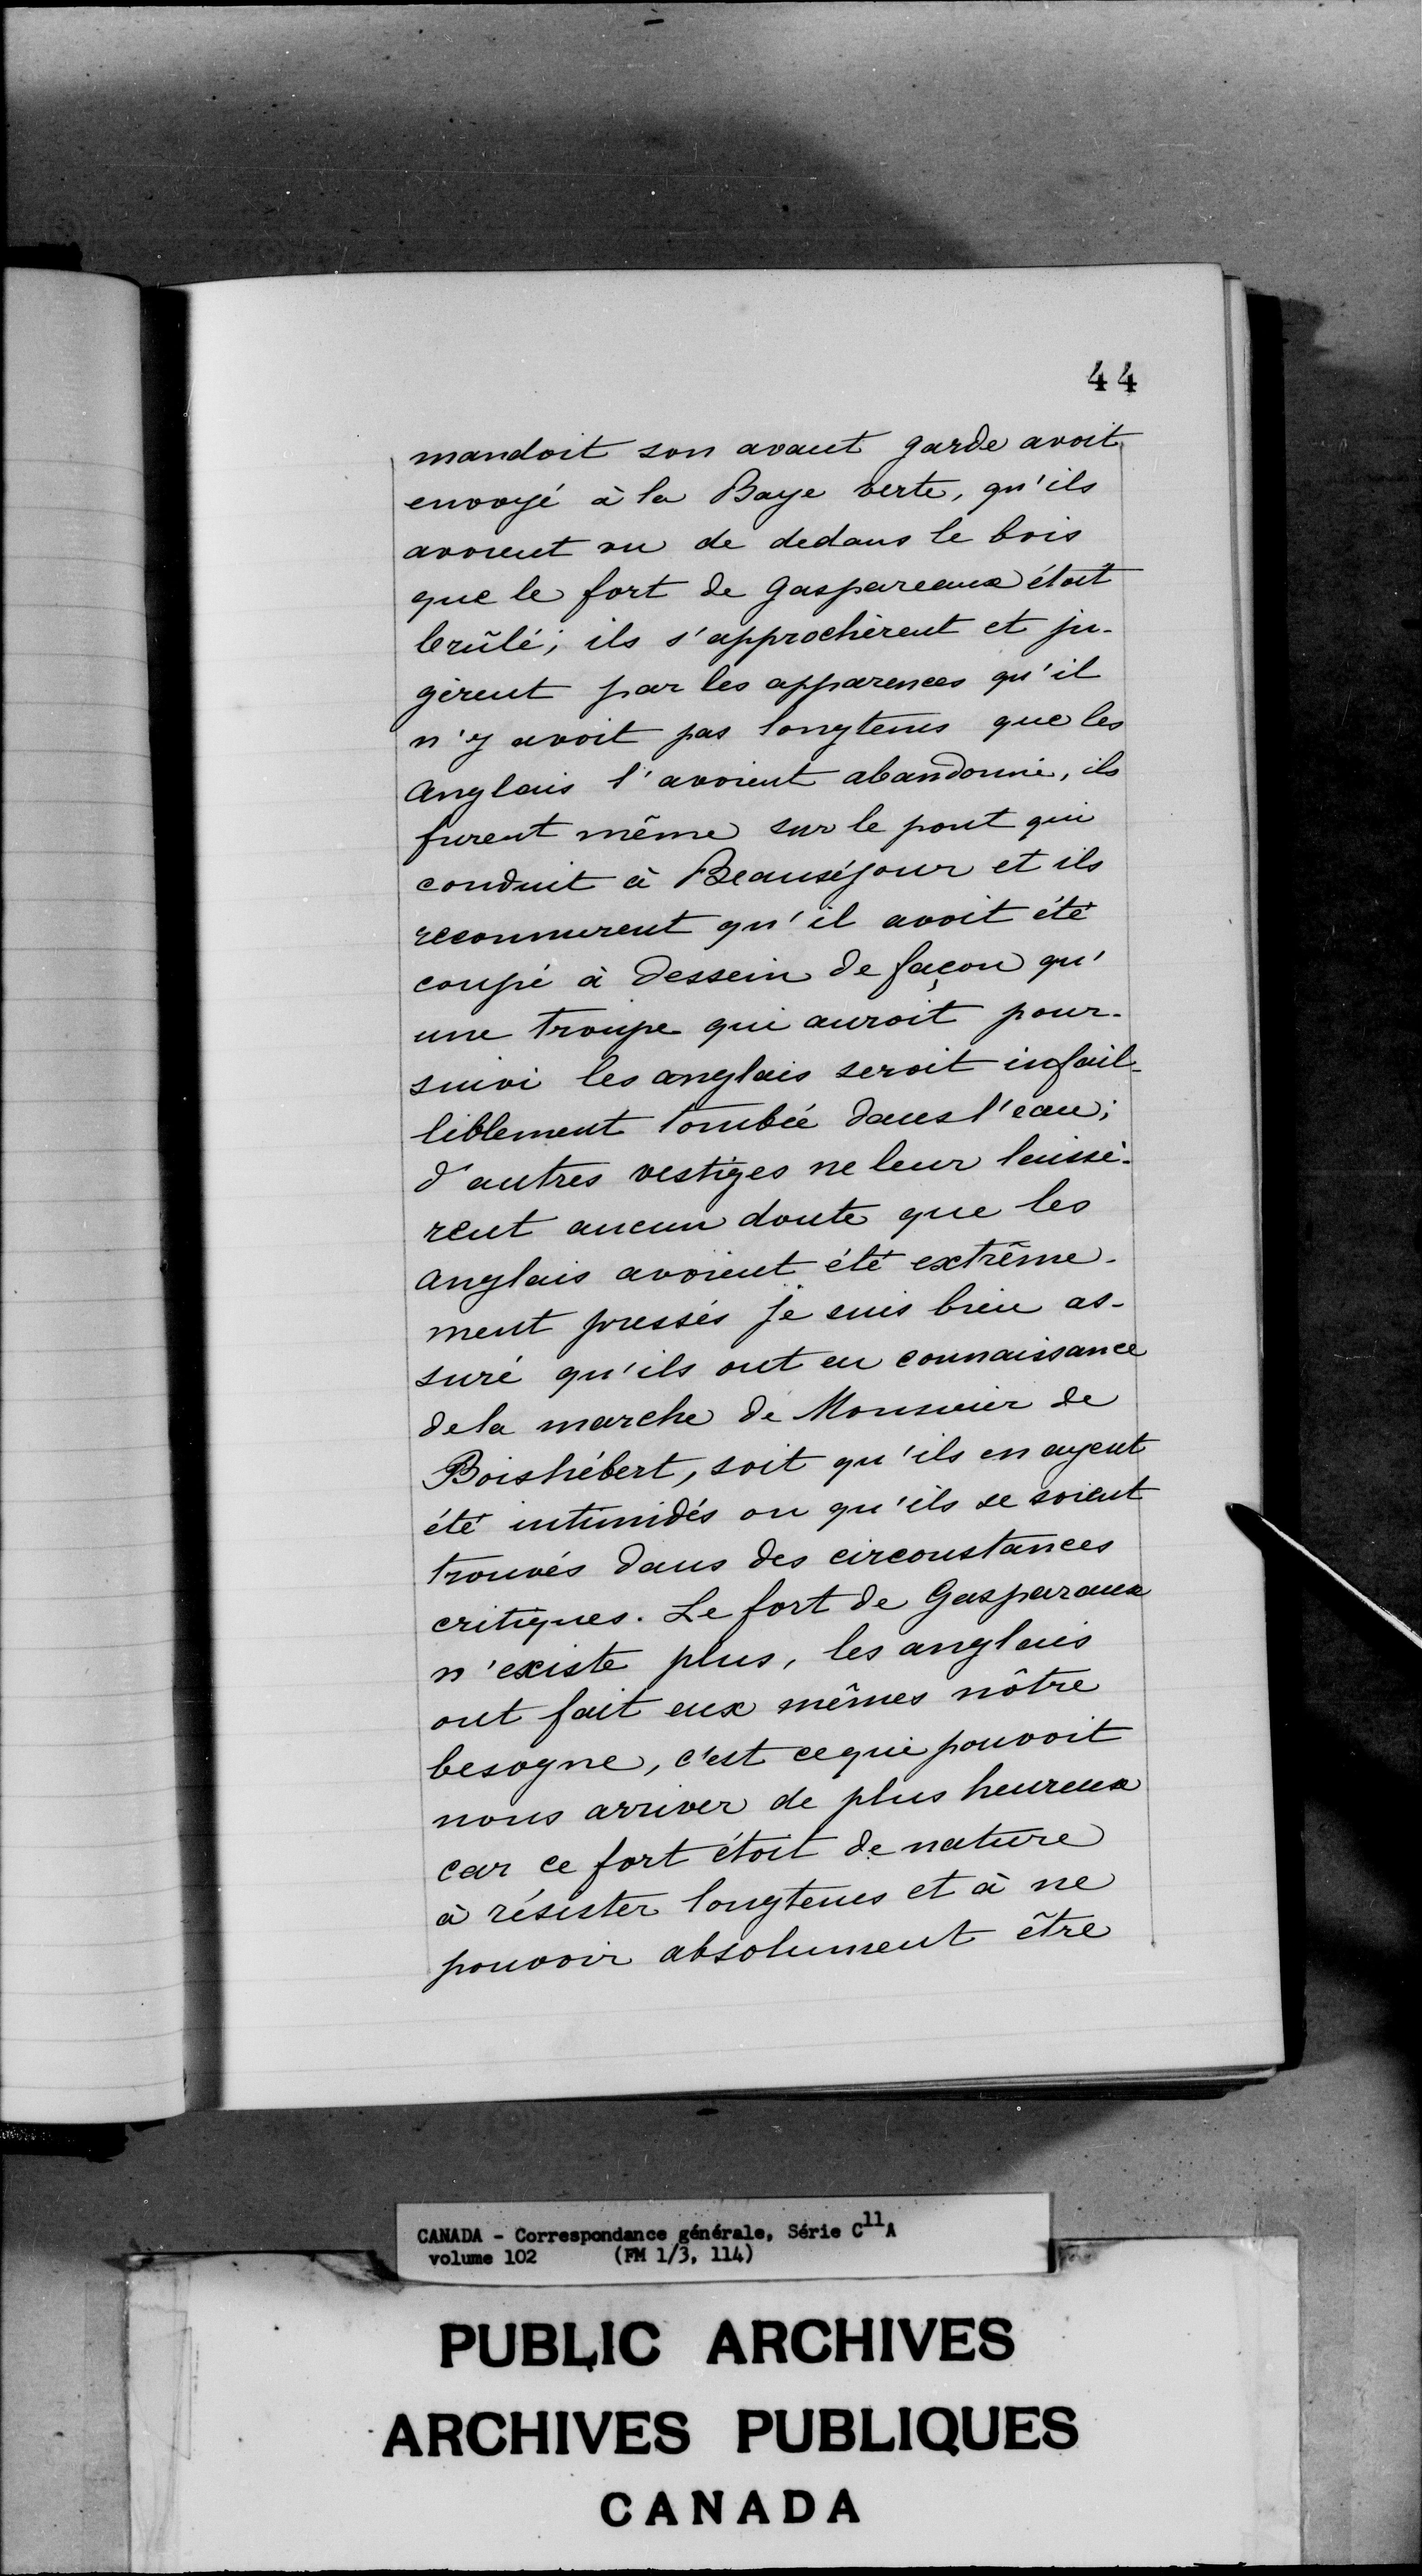 44
mandoit son avant garde avoit
envoyé à la Baye verte, qu'ils
avoient vu de dedans le bois
que le fort de Gaspareaux étoit
brûlé; ils s'approchèrent et ju-
gèrent par les apparences qu'il
n'y avoit pas longtems que les
Anglais l'avoient abandonné, ils
furent même sur le pont qui
conduit à Beauséjour et ils
reconnurent qu'il avoit été
coupé à dessein de façon qu'
une troupe qui auroit pour-
suivi les anglais seroit infail-
liblement tombée dans l'eau;
d'autres vestiges ne leur laissè-
rent aucun doute que les
anglais avoient été extrême-
ment pressés je suis bien as-
suré qu'ils ont eu connaissance
de la marche de Monsieur de
Boishébert, soit qu'ils en ayent
été intimidés ou qu'ils se soient
trouvés dans des circonstances
critiques. Le fort de Gasparaux
n'existe plus, les anglais
ont fait eux mêmes nôtre
besogne, c'est ce qui pouvoit
nous arriver de plus heureux
car ce fort étoit de nature
à résister longtems et à ne
pouvoir absolument être
CANADA - Correspondance générale, Série C11A
volume 102 (FM 1/3, 114)
PUBLIC ARCHIVES
ARCHIVES PUBLIQUES
CANADA